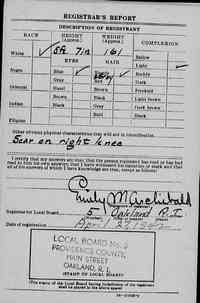 REGISTRAR'S REPORT
DESCRIPTION OF REGISTRANT
RACE HEIGHT (Approx.) WEIGHT (Approx.) COMPLEXION
White 5ft 7in 161 Sallow
EYES HAIR Light
Negro Blue Blonde Ruddy
Gray Red Dark
Oriental Hazel Brown Freckled
Brown Black Light brown
Indian Black Gray Dark brown
Bald Black
Filipino
Other obvious physical characteristics that will aid in identification
Scar on right knee
I certify that my answers are true; that the person registered has read or has had
read to him his own answers; that I have witnessed his signature or mark and that
all of his answers of which I have knowledge are true, except as follows:
Emily M Archibald
Registrar for Local Board 5 Oakland R.I.
Date of registration April 27 1942
LOCAL BOARD No.
PROVIDENCE COUNTY,
MAIN STREET
OAKLAND, R. I.
(STAMP OF LOCAL BOARD)
(The stamp of the Local Board having jurisdiction of the registrant
shall be placed in the above space)